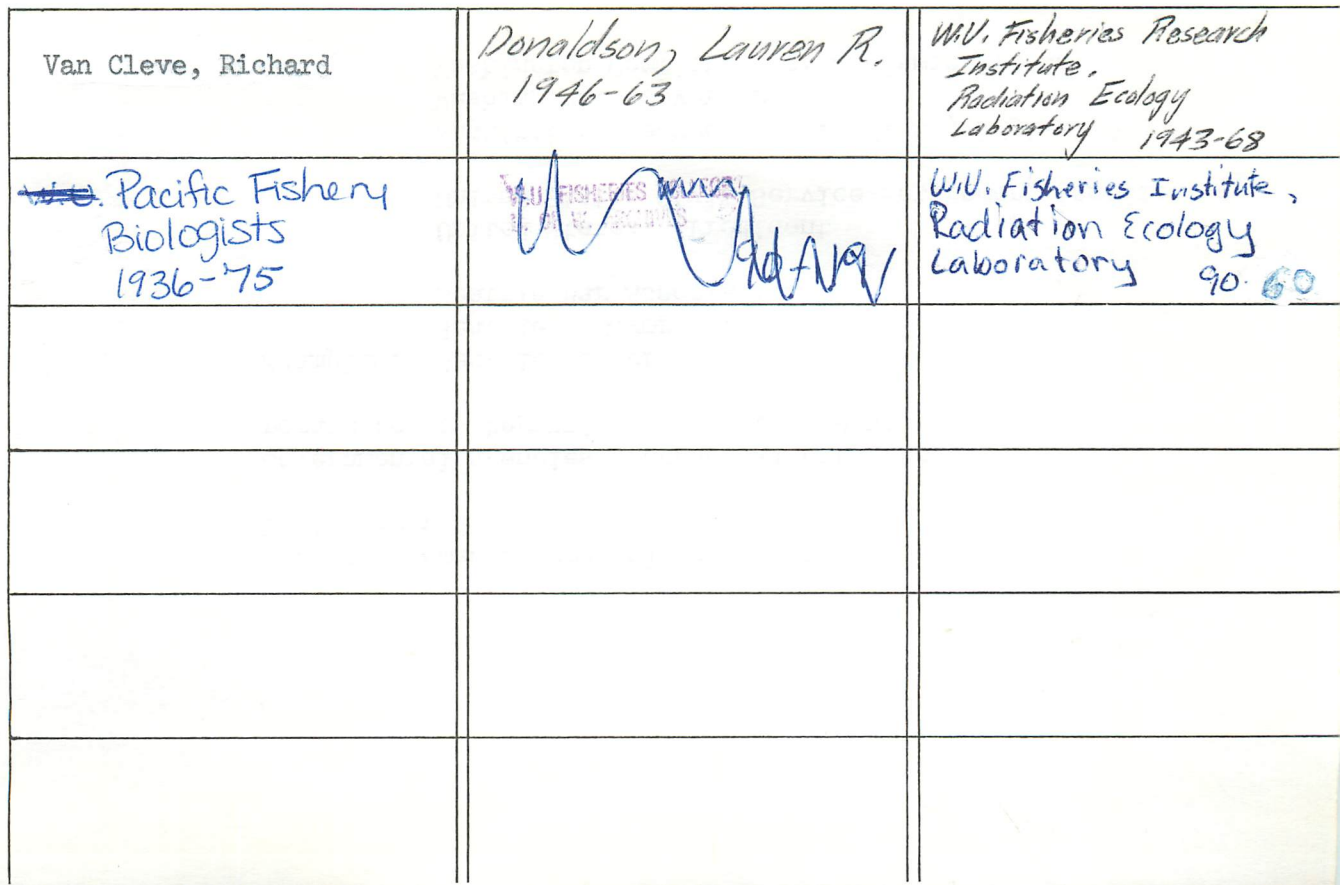 Van Cleve, Richard
Donaldson, Lauren R.
1946-63
W.U. Fisheries Research
Institute,
Radiation Ecology
Laboratory 1943-68
Pacific Fishery
Biologists
1936-'75
W.U. FISHERIES
W.U. Fisheries Institute,
Radiation Ecology
Laboratory 90. 60